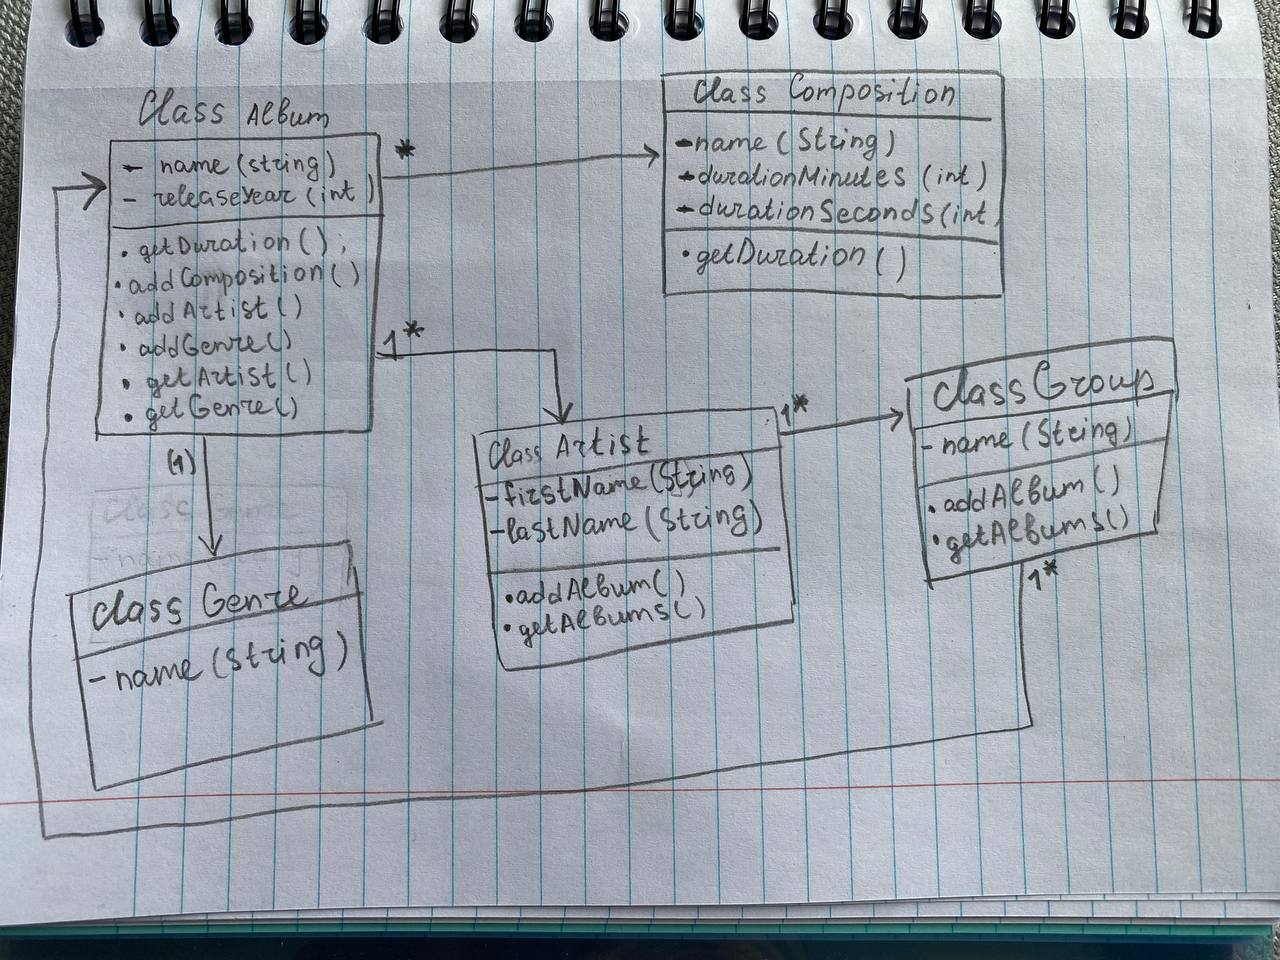 Class Album
- name (string)
- releaseYear (int)
• getDuration();
• addComposition()
• addArtist()
• addGenre()
• getArtist()
• getGenre()
*
Class Composition
- name (String)
- durationMinutes (int)
- durationSeconds (int
• getDuration()
1*
Class Artist
- firstName (String)
- lastName (String)
• addAlbum()
• getAlbums()
1*
Class Group
- name (String)
• addAlbum()
• getAlbums()
1*
(1)
Class Genre
- name (String)
Class Genre
- name (String)